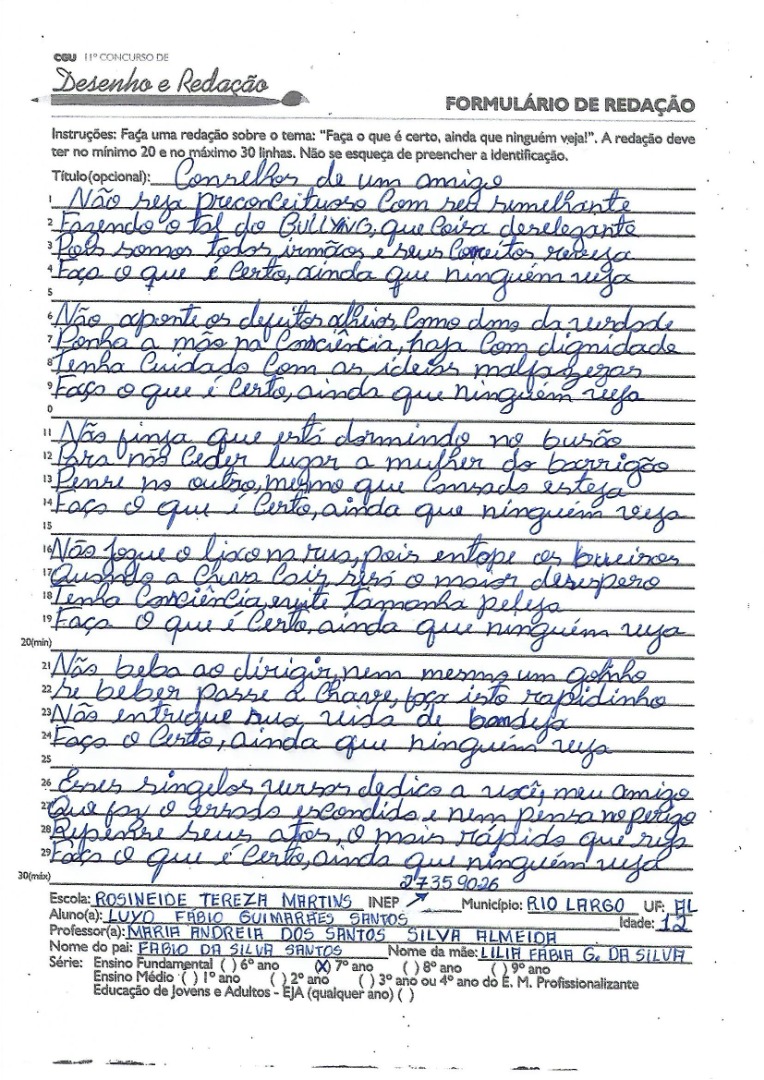 CGU 11º CONCURSO DE
Desenho e Redação
FORMULÁRIO DE REDAÇÃO
Instruções: Faça uma redação sobre o tema: "Faça o que é certo, ainda que ninguém veja!". A redação deve
ter no mínimo 20 e no máximo 30 linhas. Não se esqueça de preencher a identificação.
Título(opcional): Conselhos de um amigo
1 Não seja preconceituoso Com seu semelhante
2 Fazendo o tal do BULLYING, que Coisa deselegante
3 Pois somos todos irmãos e seus Conceitos reveja
4 Faça o que é Certo, ainda que ninguém veja
5
6 Não aponte os defeitos alheios, Como dono da verdade
7 Ponha a mão na Consciência, haja Com dignidade
8 Tenha Cuidado Com as ideias malfazejas
9 Faça o que é Certo, ainda que ninguém veja
0
11 Não finja que está dormindo no busão
12 Para não Ceder lugar a mulher do barrigão
13 Pense no outro, mesmo que Cansado esteja
14 Faça o que é Certo, ainda que ninguém veja
15
16 Não jogue o lixo na rua, pois entope os bueiros
17 Quando a Chuva Cair, será o maior desespero
18 Tenha Consciência, evite tamanha peleja
19 Faça o que é Certo, ainda que ninguém veja
20(min)
21 Não beba ao dirigir, nem mesmo um golinho
22 Se beber passe a Chave, faça isto rapidinho
23 Não entregue sua vida de bandeja
24 Faça o Certo, ainda que ninguém veja
25
26 Esses singelos versos dedico a você, meu amigo
27 Que faz o errado escondido e nem pensa no perigo
28 Repense seus atos, o mais rápido que seja
29 Faça o que é Certo, ainda que ninguém veja
30(máx)
27359026
Escola: ROSINEIDE TEREZA MARTINS INEP Município: RIO LARGO UF: AL
Aluno(a): LUYD FÁBIO GUIMARÃES SANTOS Idade: 12
Professor(a): MARIA ANDREIA DOS SANTOS SILVA ALMEIDA
Nome do pai: FABIO DA SILVA SANTOS Nome da mãe: LILIA FABIA G. DA SILVA
Série: Ensino Fundamental ( ) 6º ano (X) 7º ano ( ) 8º ano ( ) 9º ano
Ensino Médio ( ) 1º ano ( ) 2º ano ( ) 3º ano ou 4º ano do E. M. Profissionalizante
Educação de Jovens e Adultos - EJA (qualquer ano) ( )